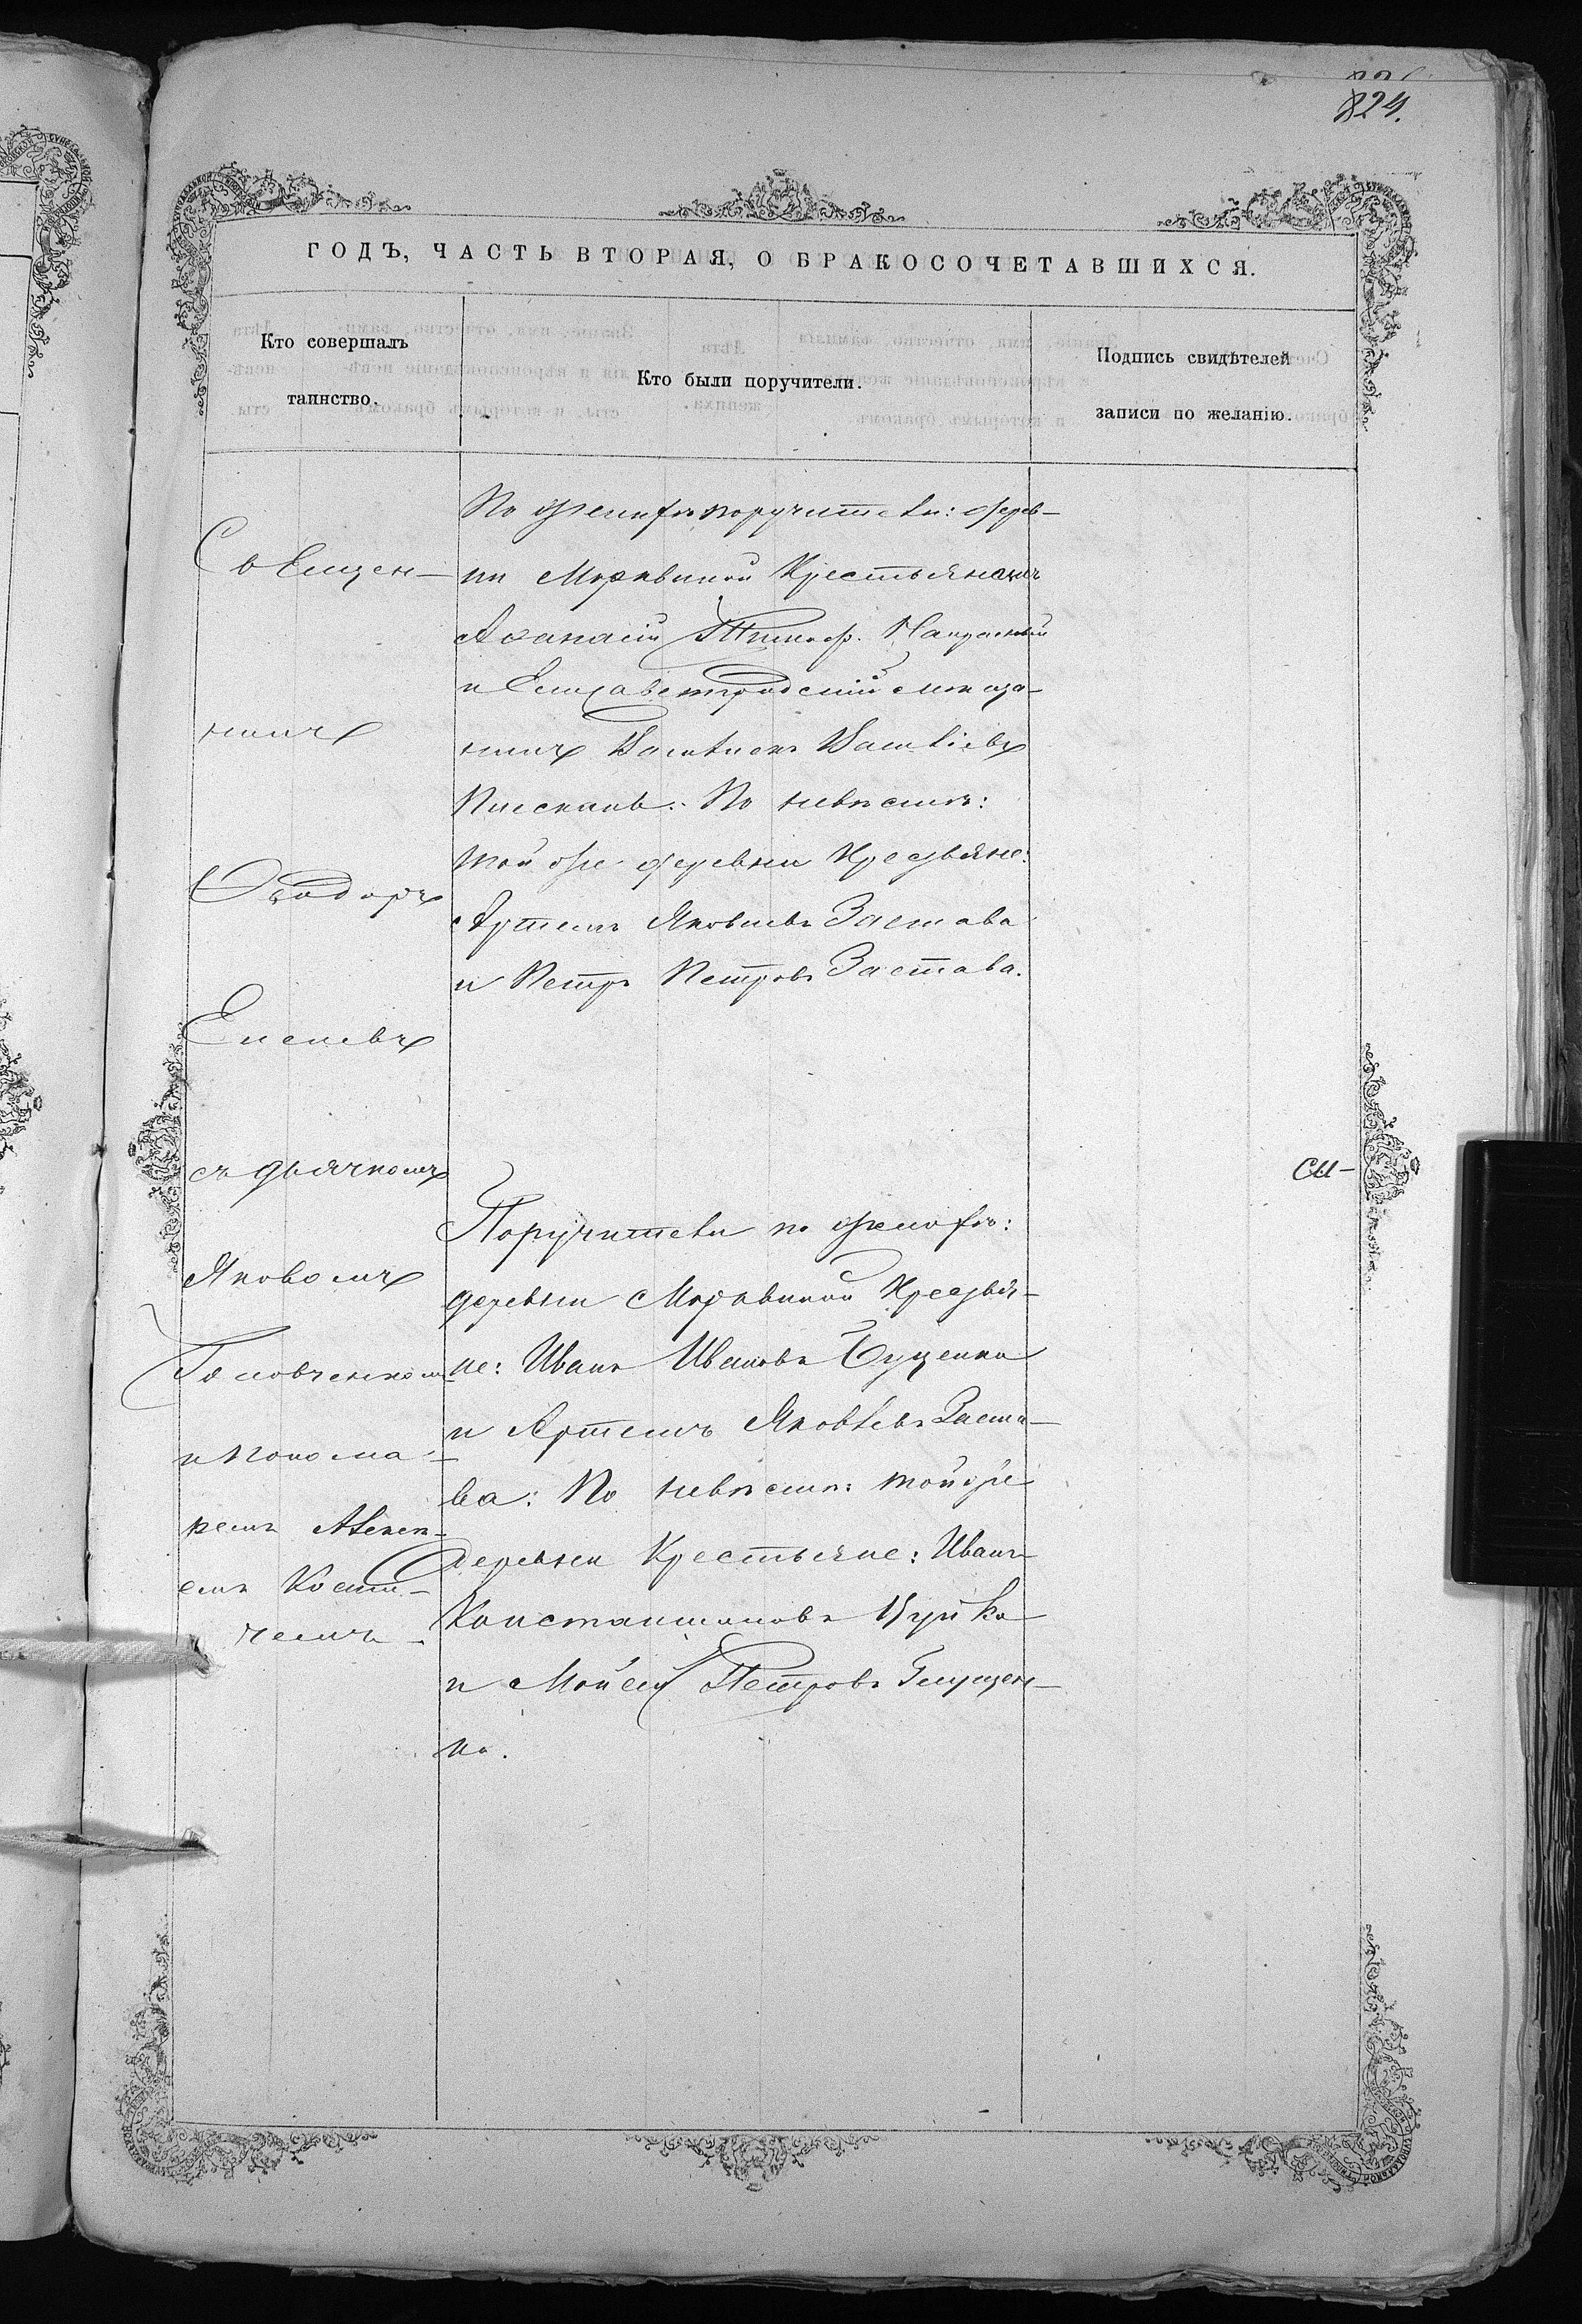 824.
ГОДЪ, ЧАСТЬ ВТОРАЯ, О БРАКОСОЧЕТАВШИХСЯ.
Кто совершалъ
таинство.
Кто были поручители.
Подпись свидѣтелей
записи по желанію.
Священ-
никъ
Ѳеодоръ
Еленевъ
съ дьячкомъ
Яковомъ
Головченкомъ
и понома-
ремъ Алекс-
емъ Кости-
чемъ
По женихѣ поручители: дерев-
ни Марьвиной Крестьянинъ
Аѳанасій Тимоф.
и Елисаветградскій мѣща-
нинъ Василій Васильевъ
По невѣстѣ:
той же деревни Крестьяне:
Артемъ Яковлевъ Застава
и Петръ Петровъ Застава.
Поручители по женихѣ:
деревни Марьвиной Крестья-
не: Иванъ Ивановъ Буценко
и Артемъ Яковлевъ Заста-
ва: По невѣстѣ: той же
деревни Крестьяне: Иванъ
Константиновъ
и Мойсей Петровъ Глущен-
ко.
си-